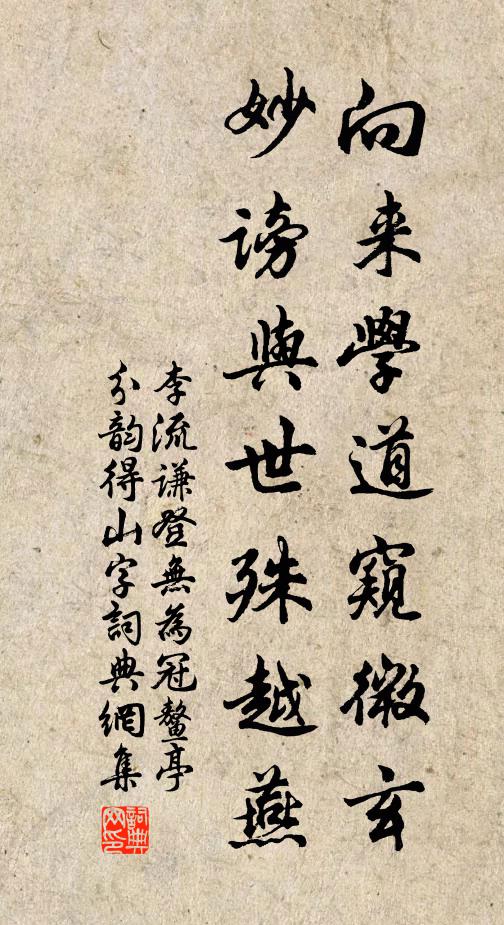 向来學道窺微玄
妙謗與世殊越燕
李流謙登無為冠鳌亭
分韵得山字詞典網集
詞典网印